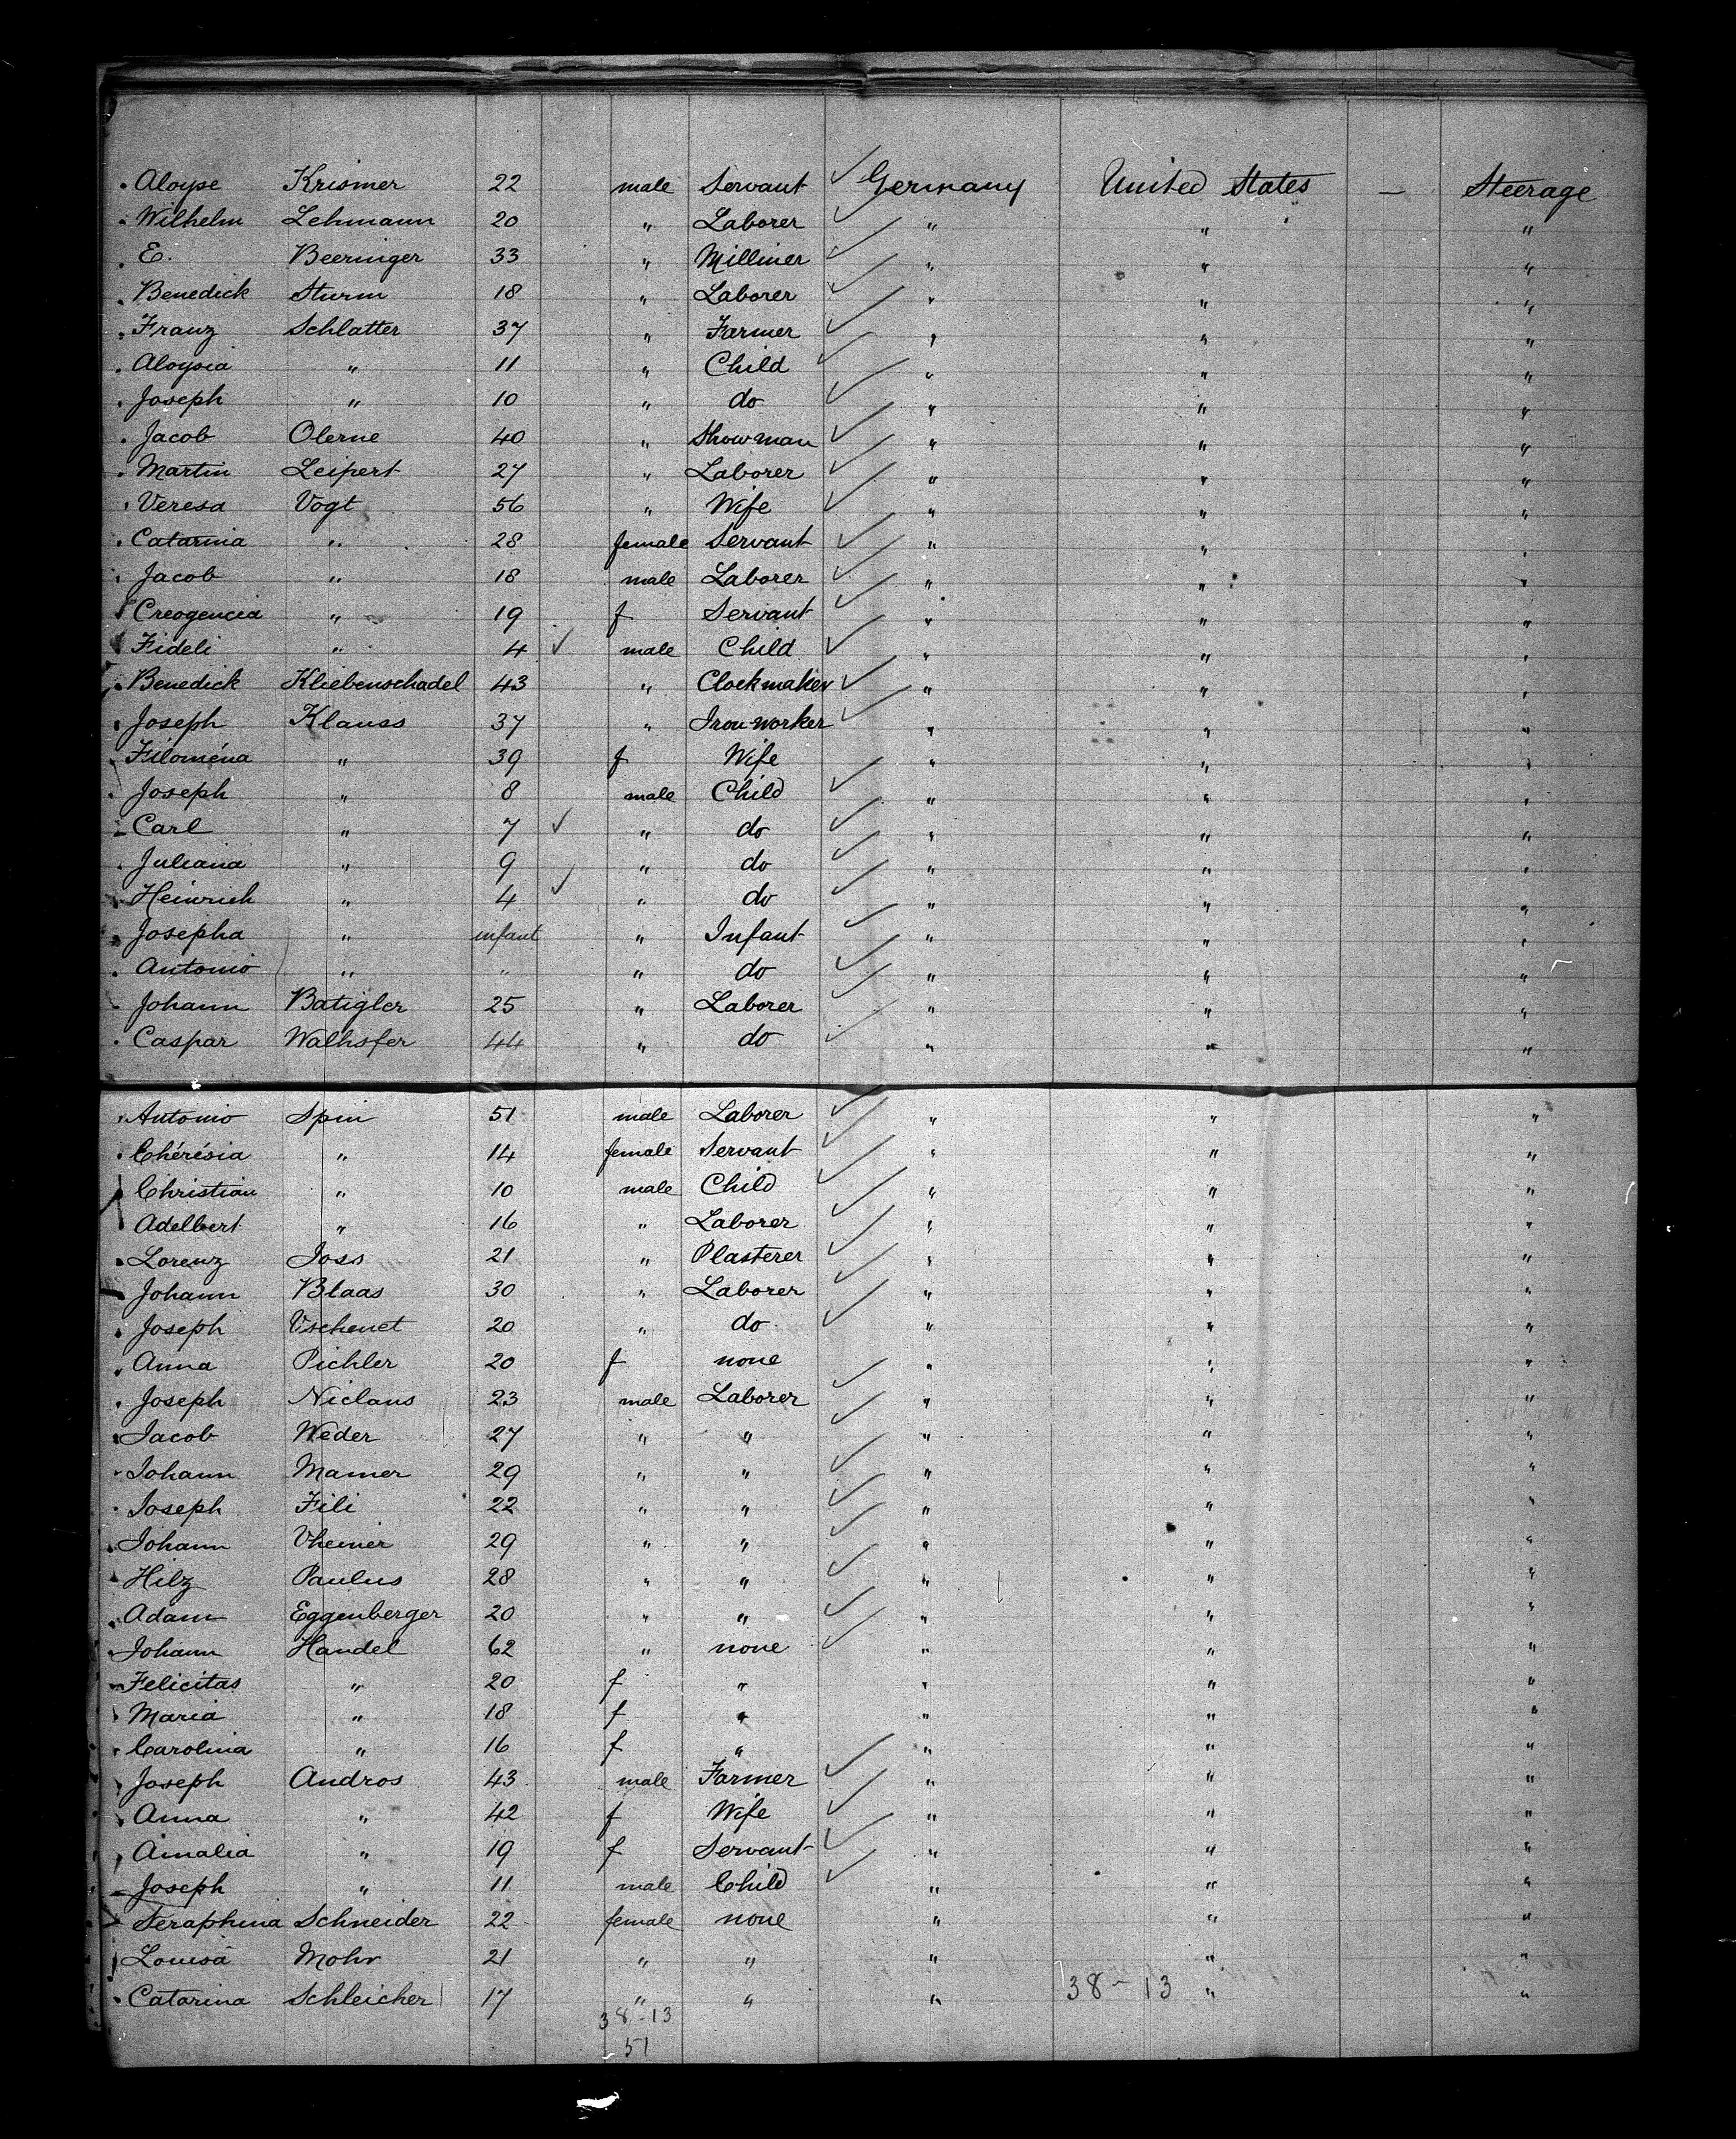 Aloyse Krismer 22 male Servant Germany United States — Steerage
Wilhelm Lehmann 20 " Laborer " " "
E. Beeringer 33 " Milliner " " "
Benedick Sturm 18 " Laborer " " "
Franz Schlatter 37 " Farmer " " "
Aloysia " 11 " Child " " "
Joseph " 10 " do " " "
Jacob Olerne 40 " Showman " " "
Martin Leipert 27 " Laborer " " "
Veresa Vogt 56 " Wife " " "
Catarina " 28 female Servant " " "
Jacob " 18 male Laborer " " "
Creogencia " 19 f Servant " " "
Fideli " 4 ✓ male Child " " "
Benedick Kliebenschadel 43 " Clockmaker " " "
Joseph Klauss 37 " Iron worker " " "
Filoména " 39 f Wife " " "
Joseph " 8 male Child " " "
Carl " 7 ✓ " do " " "
Juliana " 9 " do " " "
Heinrich " 4 ✓ " do " " "
Josepha " infant " Infant " " "
Antonio " " " do " " "
Johann Batigler 25 " Laborer " " "
Caspar Walhsfer 44 " do " " "
Antonio Spin 51 male Laborer " " "
Chérésia " 14 female Servant " " "
Christian " 10 male Child " " "
Adelbert " 16 " Laborer " " "
Lorenz Joss 21 " Plasterer " " "
Johann Blaas 30 " Laborer " " "
Joseph Vschenet 20 " do " " "
Anna Pichler 20 f none " " "
Joseph Niclaus 23 male Laborer " " "
Jacob Weder 27 " " " " "
Johann Mamer 29 " " " " "
Joseph Fili 22 " " " " "
Johann Vheiner 29 " " " " "
Hilz Paulus 28 " " " " "
Adam Eggenberger 20 " " " " "
Johann Handel 62 " none " " "
Felicitas " 20 f " " " "
Maria " 18 f " " " "
Carolina " 16 f " " " "
Joseph Andros 43 male Farmer " " "
Anna " 42 f Wife " " "
Amalia " 19 f Servant " " "
Joseph " 11 male Child " " "
Seraphina Schneider 22 female none " " "
Louisa Mohr 21 " " " " "
Catarina Schleicher 17 " " " 38-13 " "
38-13
51